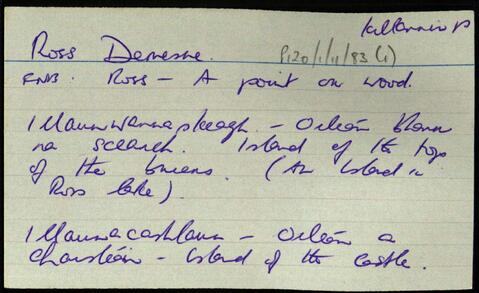 Killannin P
Ross Demesne. P120/1/11/83 (1)
FNB. Ross – A point or wood.
Illaunwannaskeagh. – Oileán bharr
na sceach. Island of the tops
of the briers. (An island in
Ross lake).
Illaunacashlaun – Oileán a
Chaisleáin – Island of the castle.